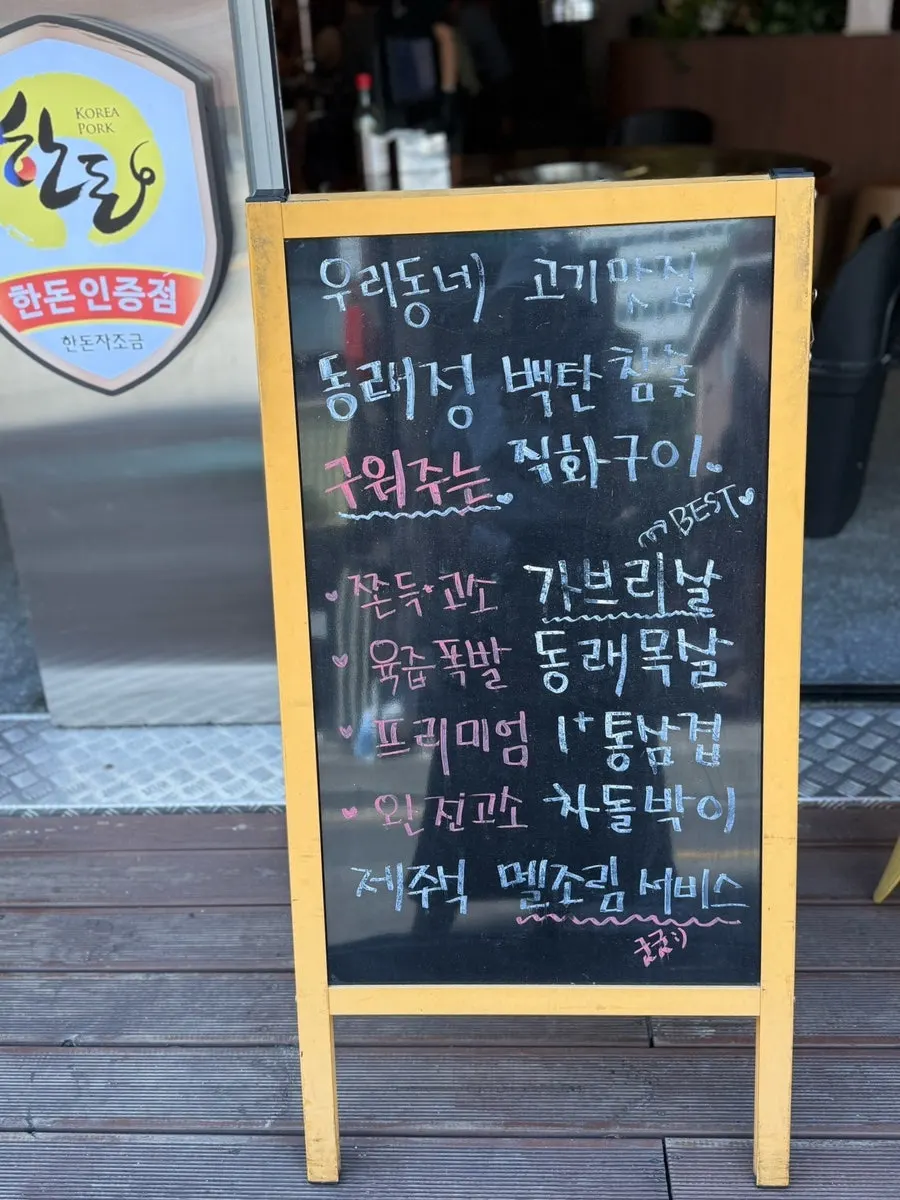 KOREA
PORK
한돈
한돈 인증점
한돈자조금
우리동네 고기맛집
동래정 백탄 참숯
구워주는 직화구이.
BEST
쫀득+고소 가브리살
육즙폭발 동래목살
프리미엄 1+통삼겹
완전고소 차돌박이
제주식 멜조림 서비스
굿굿:)